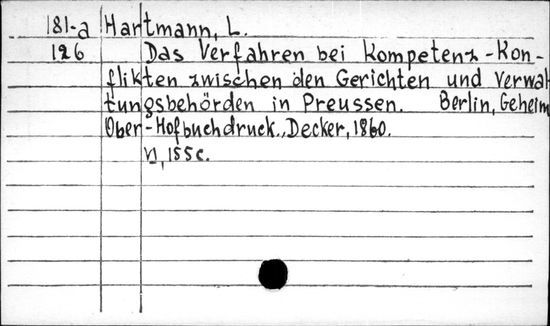 181-a Hartmann, L.
126 Das Verfahren bei Kompetenz-Kon-
flikten zwischen den Gerichten und Verwal
tungsbehörden in Preussen. Berlin, Geheim
Ober-Hofbuchdruck., Decker, 1860.
VI, 155 c.